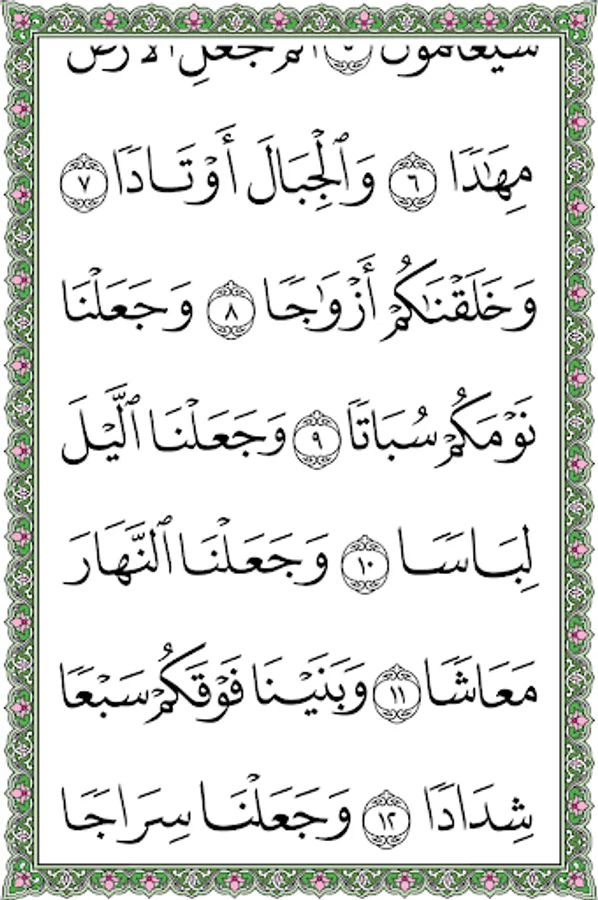 سَيَعْلَمُونَ ٥ أَلَمْ نَجْعَلِ ٱلْأَرْضَ
مِهَٰدًا ٦ وَٱلْجِبَالَ أَوْتَادًا ٧
وَخَلَقْنَٰكُمْ أَزْوَٰجًا ٨ وَجَعَلْنَا
نَوْمَكُمْ سُبَاتًا ٩ وَجَعَلْنَا ٱلَّيْلَ
لِبَاسًا ١٠ وَجَعَلْنَا ٱلنَّهَارَ
مَعَاشًا ١١ وَبَنَيْنَا فَوْقَكُمْ سَبْعًا
شِدَادًا ١٢ وَجَعَلْنَا سِرَاجًا